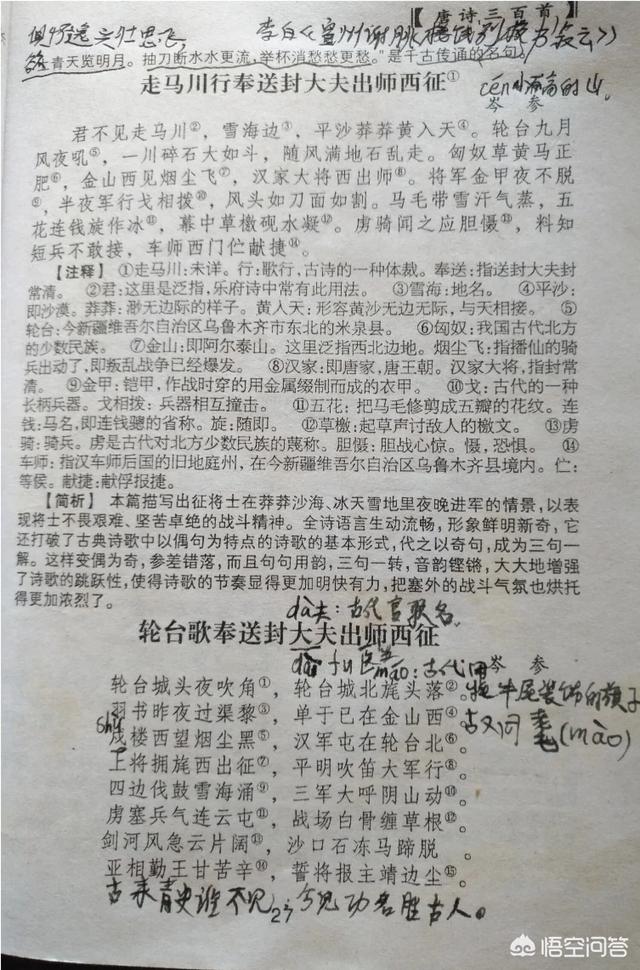 【唐诗三百首】
俱怀逸兴壮思飞，
李白《宣州谢朓楼饯别校书叔云》
欲青天览明月。抽刀断水水更流，举杯消愁愁更愁。”是千古传诵的名句。
走马川行奉送封大夫出师西征①
cén 小而高的山。
岑 参
君不见走马川②，雪海边③，平沙莽莽黄入天④。轮台九月
风夜吼⑤，一川碎石大如斗，随风满地石乱走。匈奴草黄马正
肥⑥，金山西见烟尘飞⑦，汉家大将西出师⑧。将军金甲夜不脱
⑨，半夜军行戈相拨⑩，风头如刀面如割。马毛带雪汗气蒸，五
花连钱旋作冰⑪，幕中草檄砚水凝⑫。虏骑闻之应胆慑⑬，料知
短兵不敢接，车师西门伫献捷⑭。
【注释】 ①走马川：未详。行：歌行、古诗的一种体裁。奉送：指送封大夫封
常清。 ②君：这里是泛指，乐府诗中常有此用法。 ③雪海：地名。 ④平沙：
即沙漠。莽莽：渺无边际的样子。黄入天：形容黄沙无边无际，与天相接。 ⑤
轮台：今新疆维吾尔自治区乌鲁木齐市东北的米泉县。 ⑥匈奴：我国古代北方
的少数民族。 ⑦金山：即阿尔泰山。这里泛指西北边地。烟尘飞：指播仙的骑
兵出动了，即叛乱战争已经爆发。 ⑧汉家：即唐家，唐王朝。汉家大将，指封常
清。 ⑨金甲：铠甲，作战时穿的用金属缀制而成的衣甲。 ⑩戈：古代的一种
长柄兵器。戈相拨：兵器相互撞击。 ⑪五花：把马毛修剪成五瓣的花纹。连
钱：马名，即连钱骢的省称。旋：随即。 ⑫草檄：起草声讨敌人的檄文。 ⑬虏
骑：骑兵。虏是古代对北方少数民族的蔑称。胆慑：胆战心惊。慑，恐惧。 ⑭
车师：指汉车师后国的旧地庭州，在今新疆维吾尔自治区乌鲁木齐县境内。伫：
等侯。献捷：献俘报捷。
【简析】 本篇描写出征将士在莽莽沙海、冰天雪地里夜晚进军的情景，以表
现将士不畏艰难、坚苦卓绝的战斗精神。全诗语言生动流畅，形象鲜明新奇，它
还打破了古典诗歌中以偶句为特点的诗歌的基本形式，代之以奇句，成为三句一
解。这样变偶为奇，参差错落，而且句句用韵，三句一转，音韵铿锵，大大地增强
了诗歌的跳跃性，使得诗歌的节奏显得更加明快有力，把塞外的战斗气氛也烘托
得更加浓烈了。
dà夫：古代官职名。
轮台歌奉送封大夫出师西征
dài fu 医生
岑 参
máo：古代用
牦牛尾装饰的旗子
古又同耄(mào)
轮台城头夜吹角①，轮台城北旄头落②。
羽书昨夜过渠黎③，单于已在金山西④。
shù
戍楼西望烟尘黑⑤，汉军屯在轮台北⑥。
上将拥旄西出征⑦，平明吹笛大军行⑧。
四边伐鼓雪海涌⑨，三军大呼阴山动⑩。
虏塞兵气连云屯⑪，战场白骨缠草根⑫。
剑河风急云片阔⑬，沙口石冻马蹄脱 。
亚相勤王甘苦辛⑭，誓将报主靖边尘⑮。
古来青史谁不见，今见功名胜古人。
悟空问答